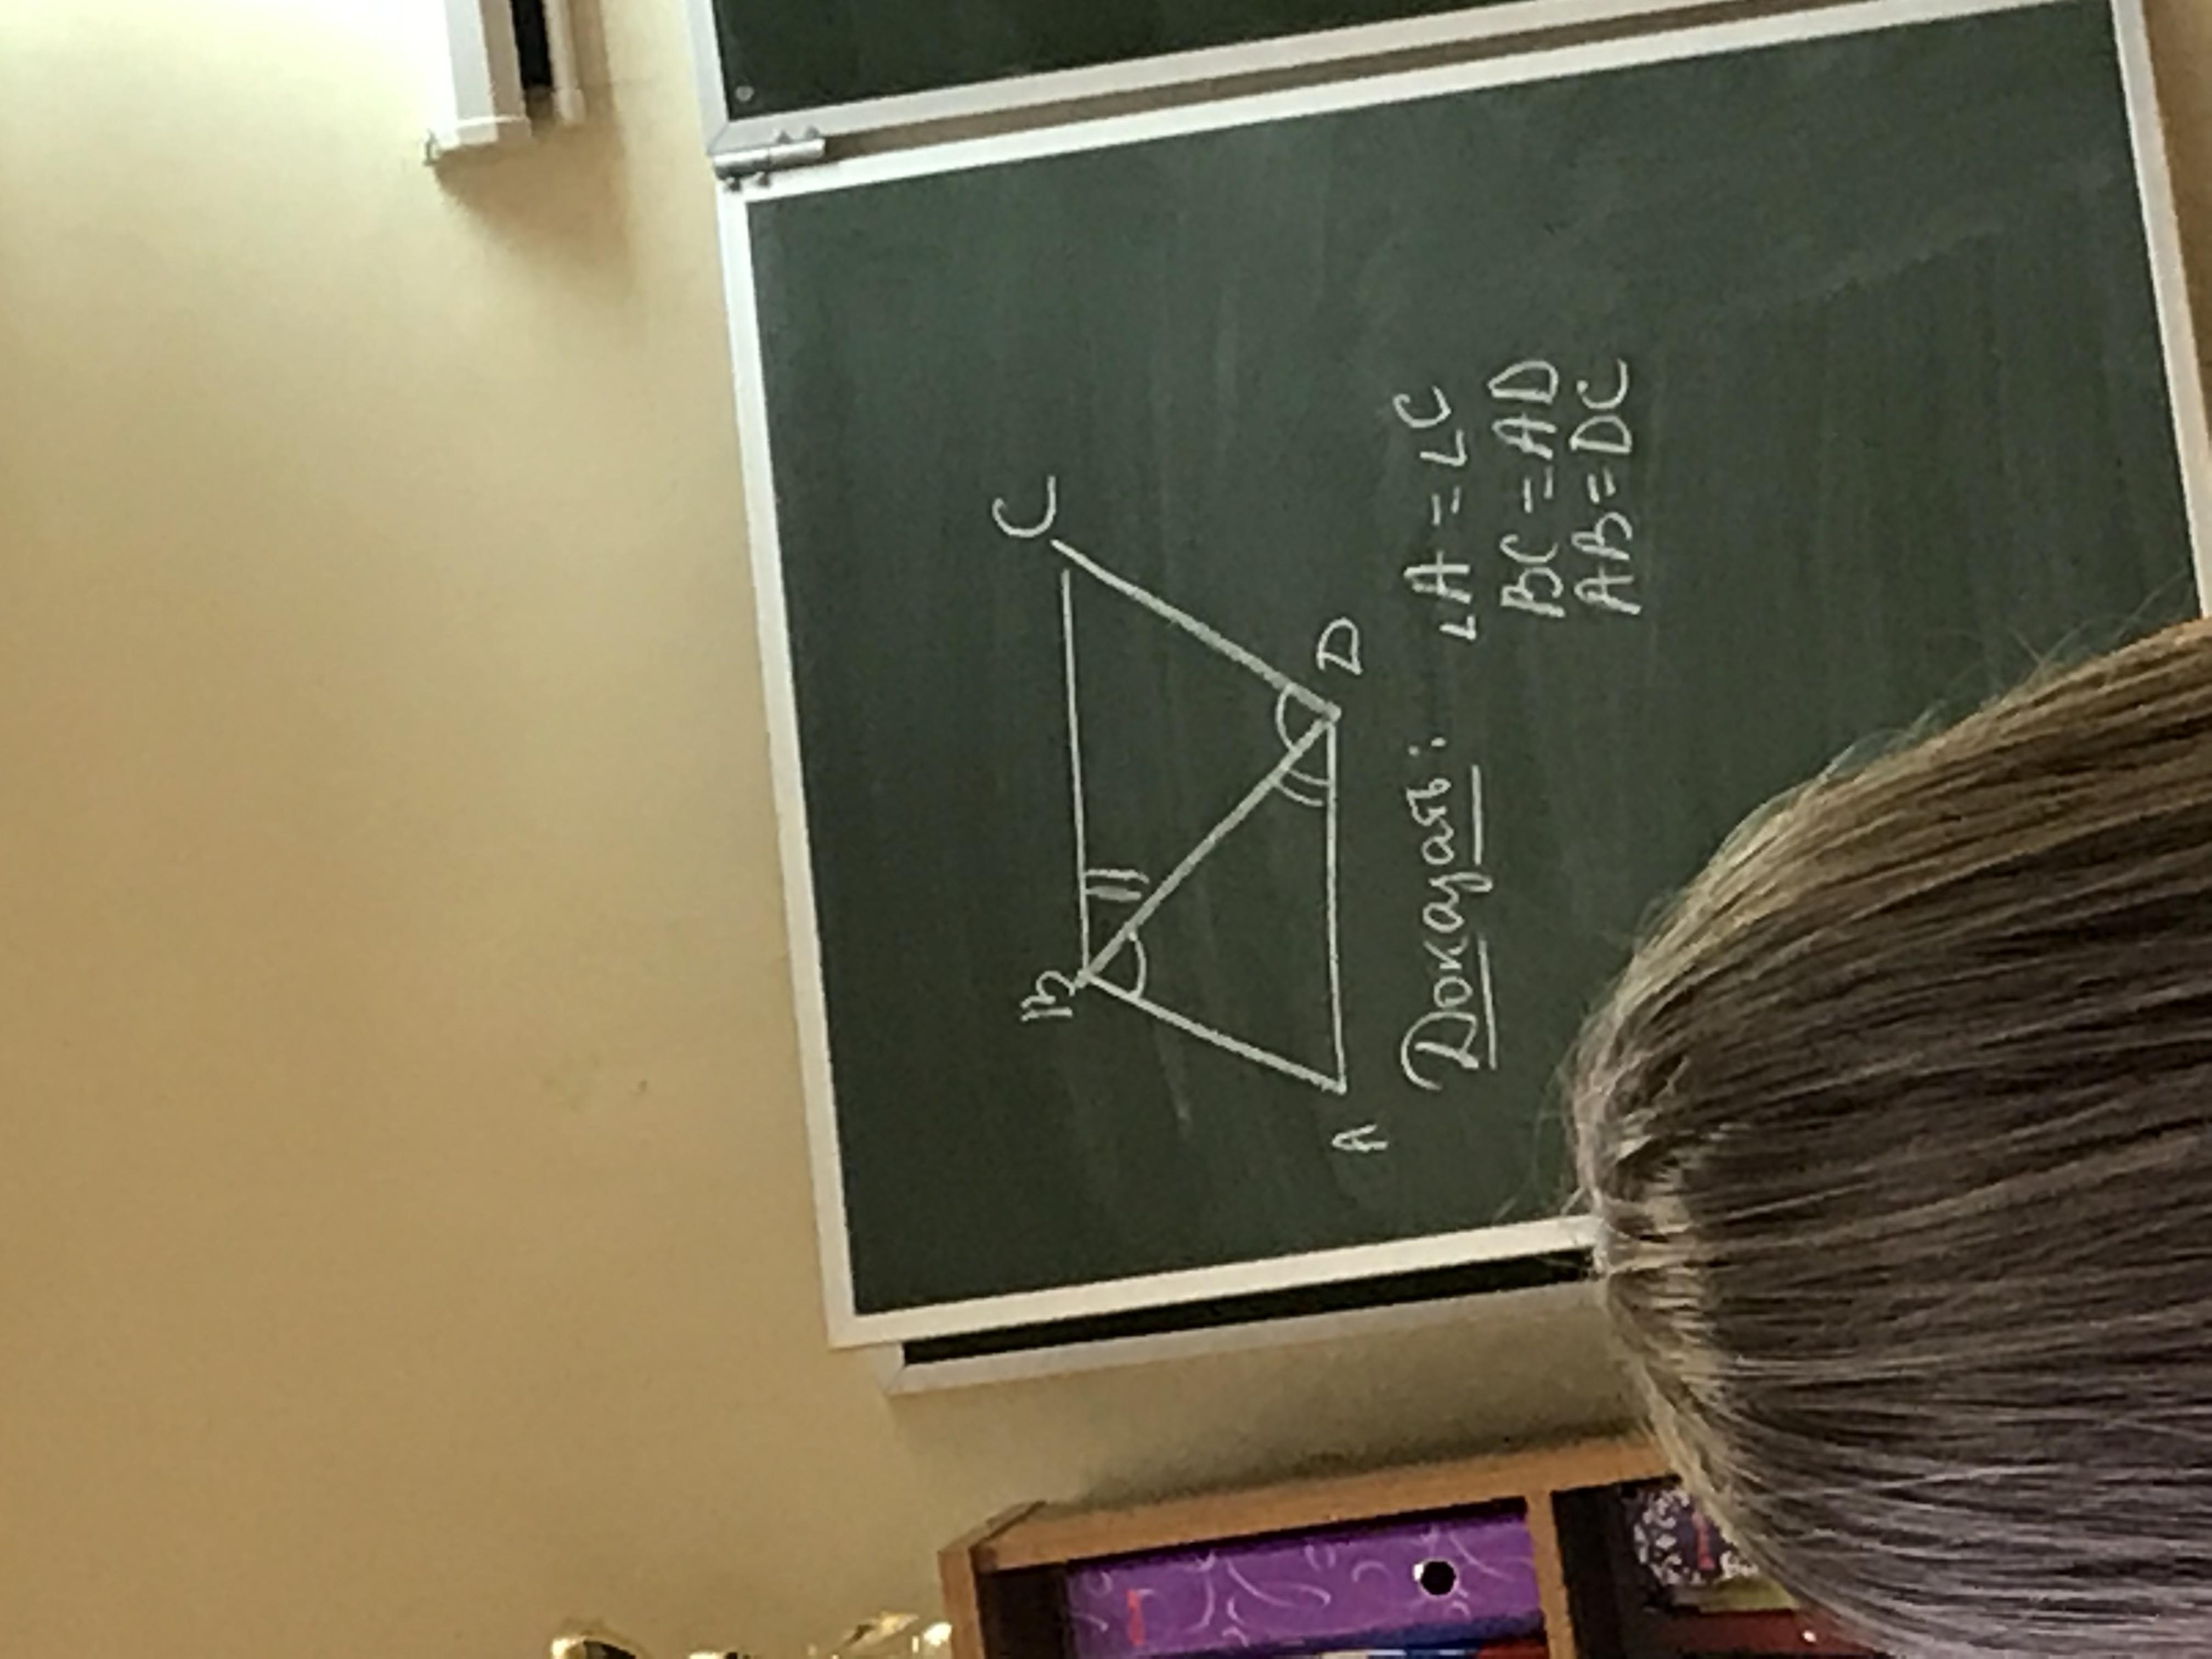 B C
A D
Доказать: ∠A = ∠C
BC = AD
AB = DC